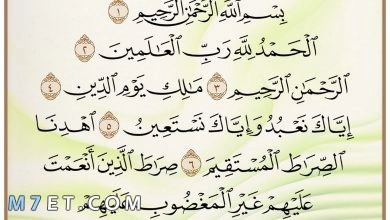 بِسْمِ ٱللَّهِ ٱلرَّحْمَٰنِ ٱلرَّحِيمِ ١
ٱلْحَمْدُ لِلَّهِ رَبِّ ٱلْعَٰلَمِينَ ٢
ٱلرَّحْمَٰنِ ٱلرَّحِيمِ ٣ مَٰلِكِ يَوْمِ ٱلدِّينِ ٤
إِيَّاكَ نَعْبُدُ وَإِيَّاكَ نَسْتَعِينُ ٥ ٱهْدِنَا
ٱلصِّرَٰطَ ٱلْمُسْتَقِيمَ ٦ صِرَٰطَ ٱلَّذِينَ أَنْعَمْتَ
عَلَيْهِمْ غَيْرِ ٱلْمَغْضُوبِ عَلَيْهِمْ
M7ET.COM